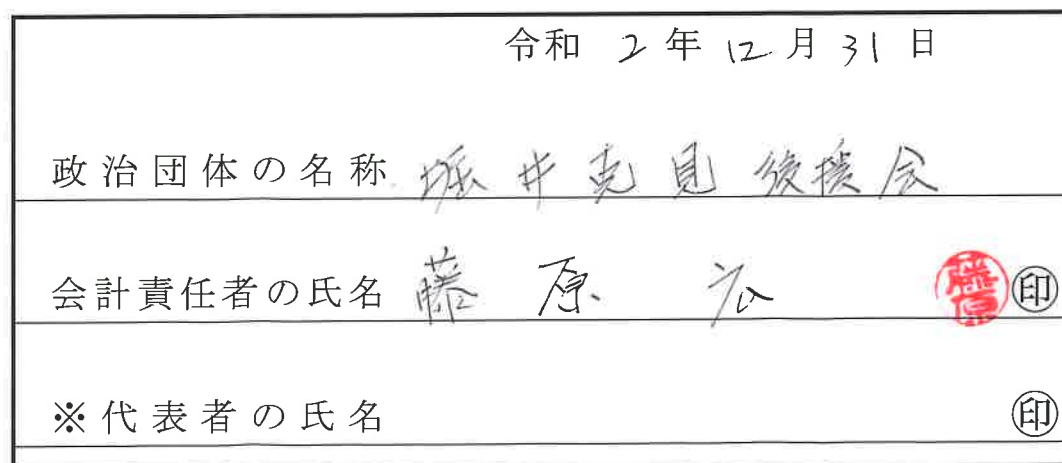 令和 2 年 12 月 31 日
政治団体の名称 堀井克見後援会
会計責任者の氏名 藤原 広 藤原 ㊞
※代表者の氏名 ㊞